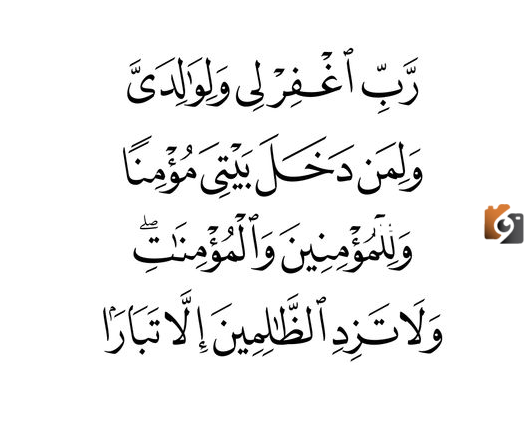 رَّبِّ ٱغْفِرْ لِى وَلِوَٰلِدَىَّ
وَلِمَن دَخَلَ بَيْتِىَ مُؤْمِنًا
وَلِلْمُؤْمِنِينَ وَٱلْمُؤْمِنَٰتِۖ
وَلَا تَزِدِ ٱلظَّٰلِمِينَ إِلَّا تَبَارًۢا